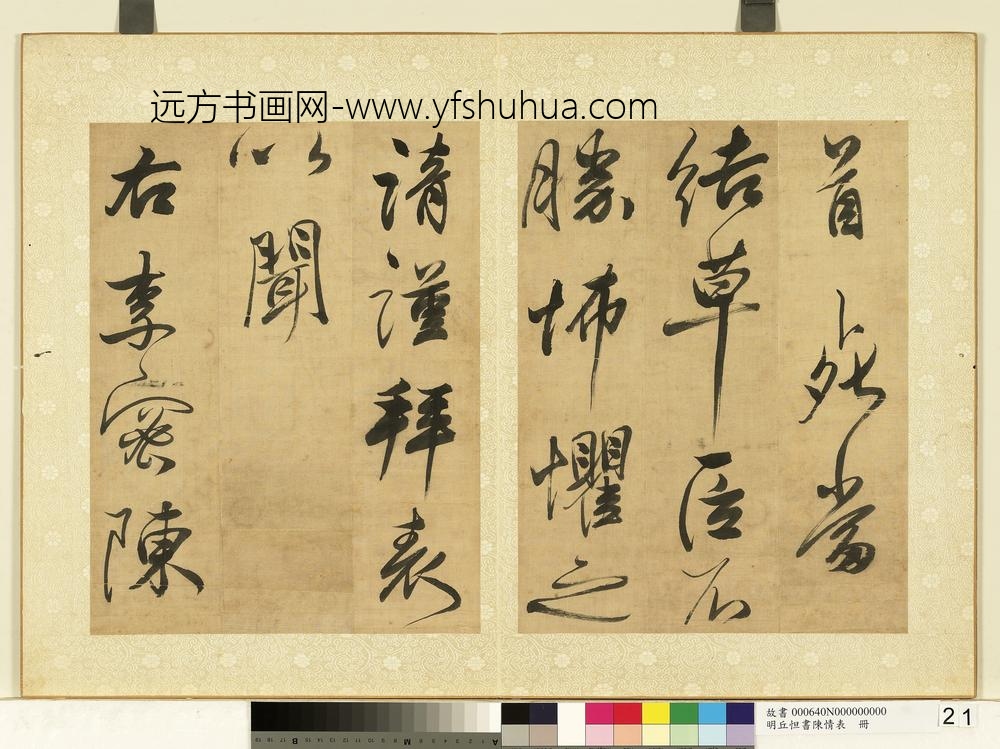 远方书画网-www.yfshuhua.com
首死當
結草臣不
勝怖懼之
情謹拜表
以聞
右李密陳
故書 000640N000000000
明丘怛書陳情表 冊
21